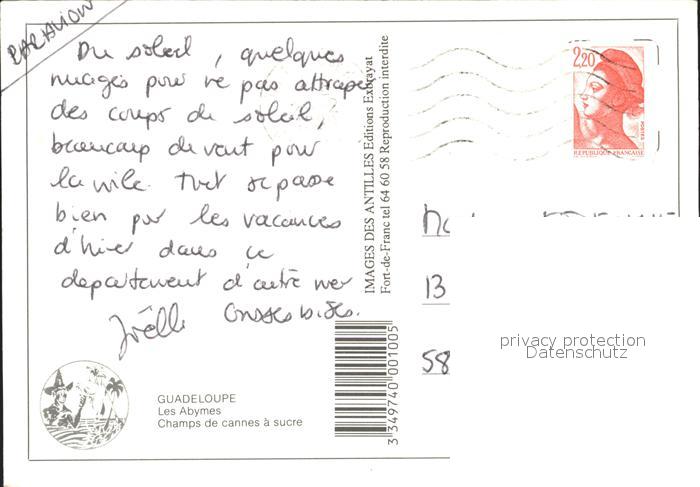 PAR AVION
Du soleil, quelques
nuages pour ne pas attraper
des coups de soleil,
beaucoup de vent pour
la voile. Tout se passe
bien pour les vacances
d'hiver dans ce
departement d'outre mer
Grosses bises.
Joëlle
IMAGES DES ANTILLES Editions Exbrayat
Fort-de-Franc tel 64 60 58 Reproduction interdite
2,20
POSTES
REPUBLIQUE FRANCAISE
13
58
privacy protection
Datenschutz
3 349740 001005
GUADELOUPE
Les Abymes
Champs de cannes à sucre